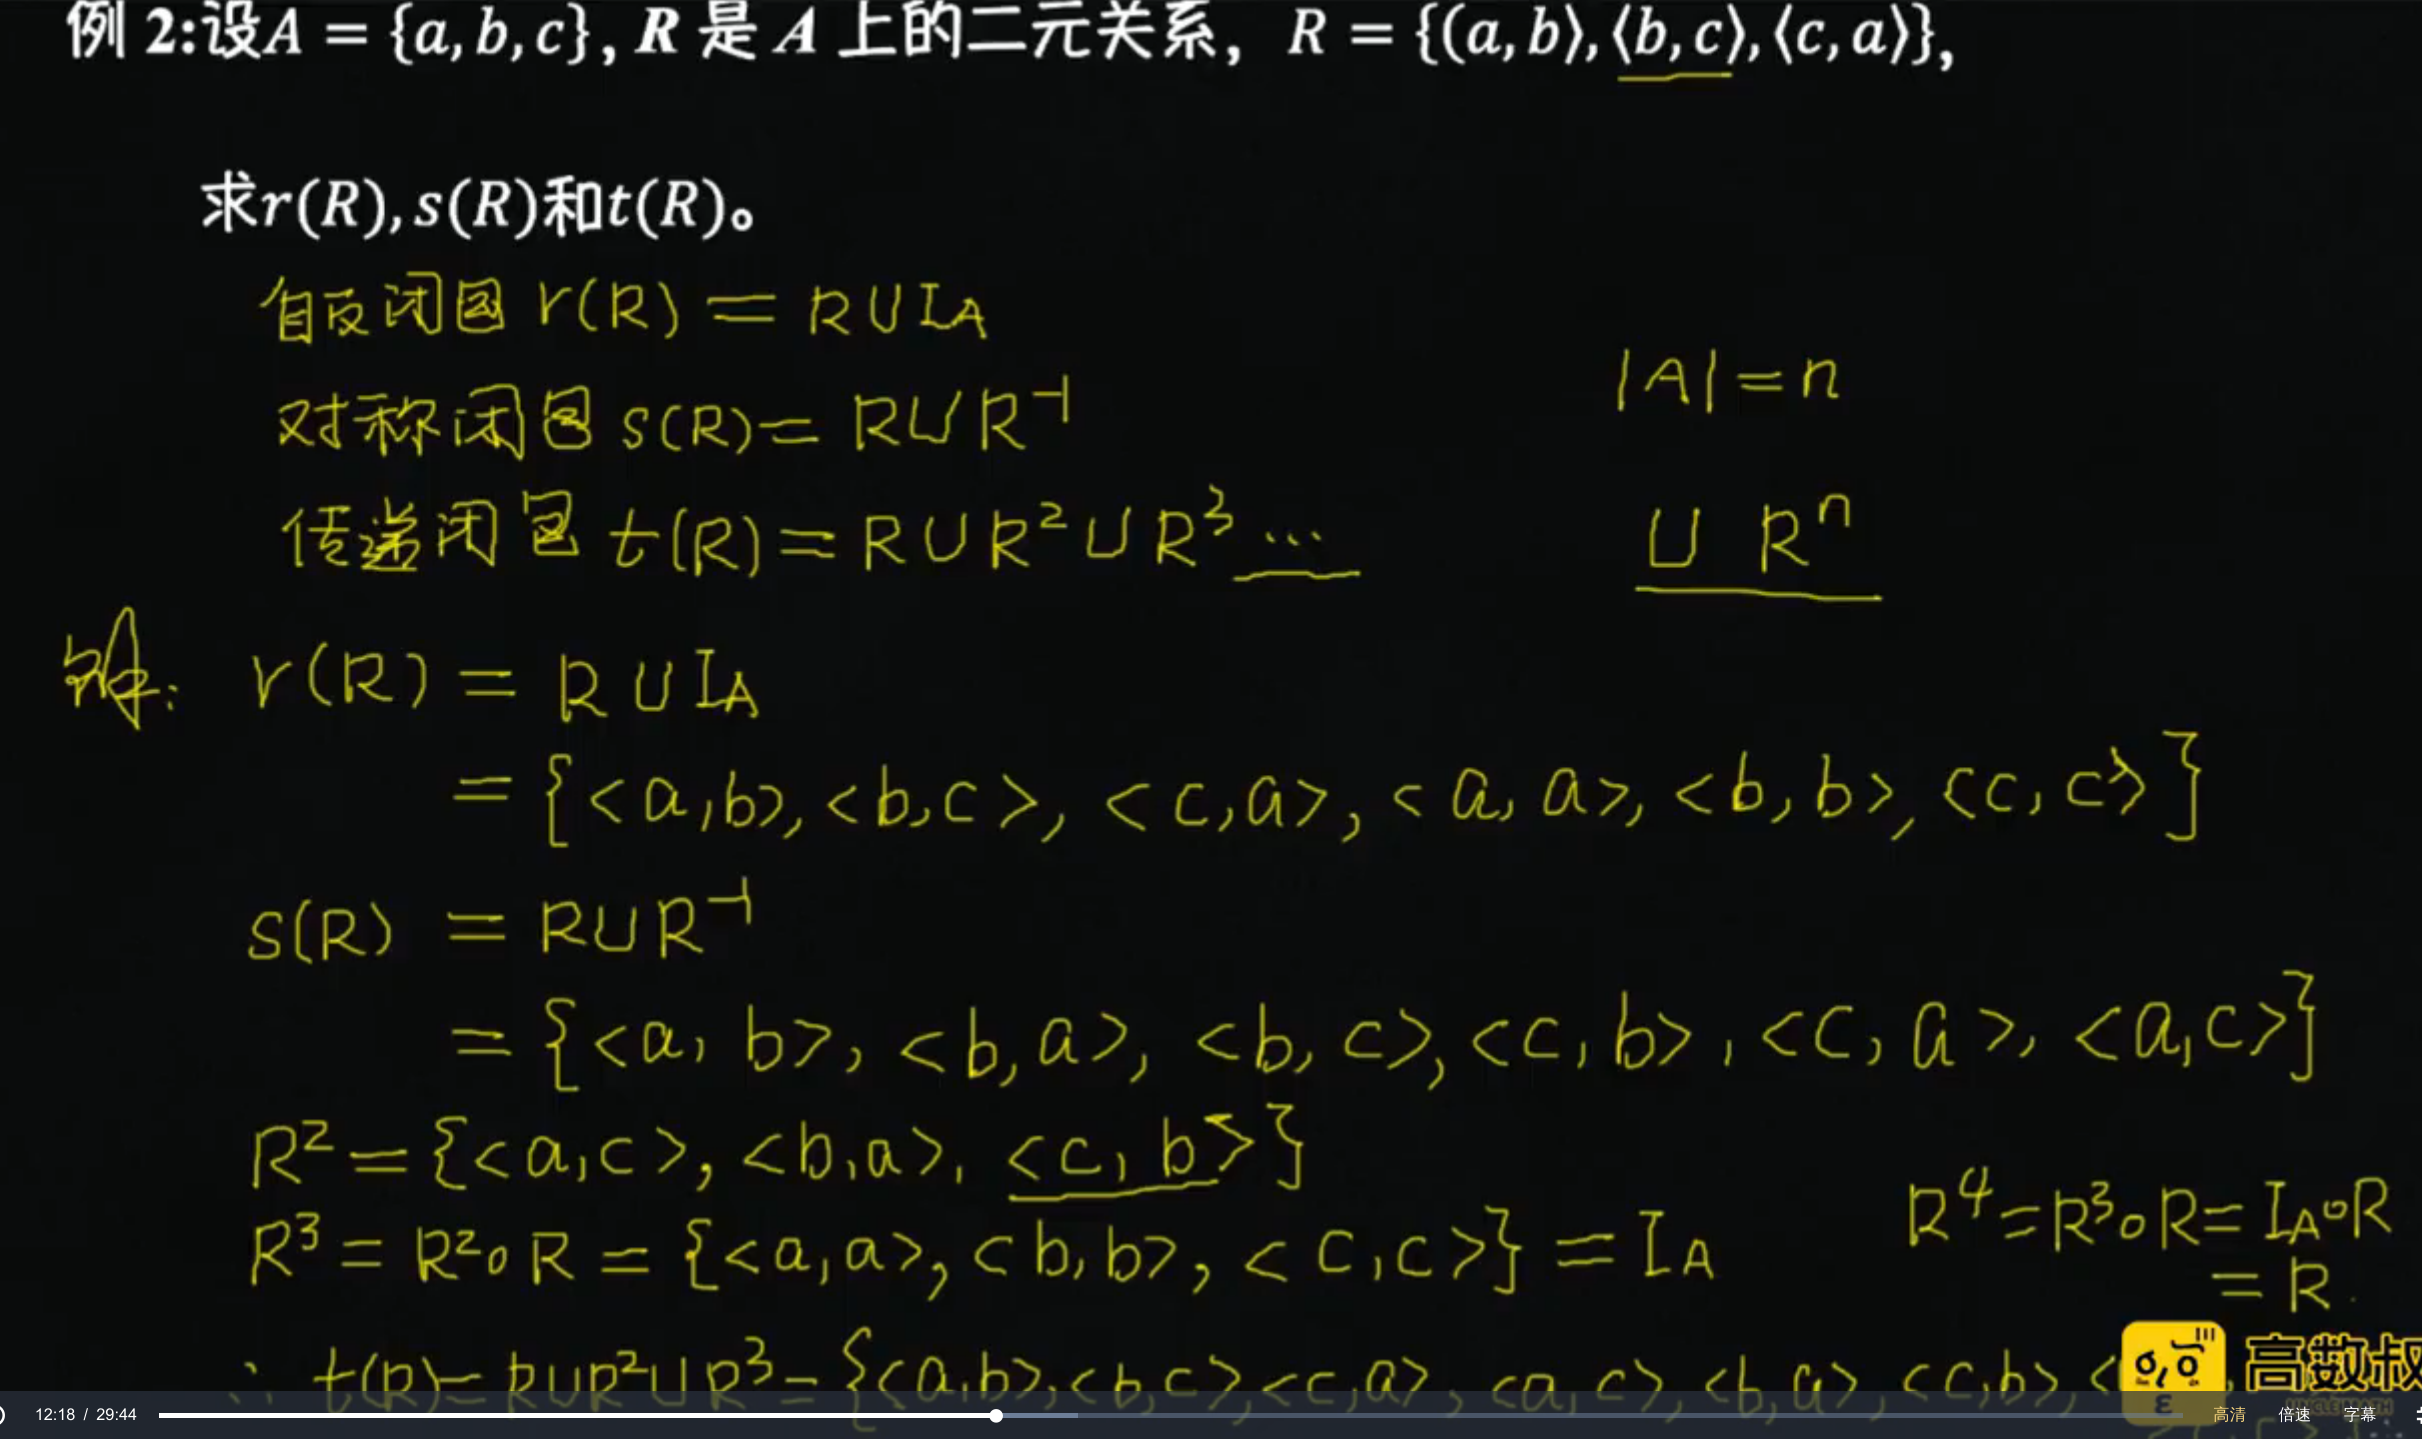 例 2:设A = {a, b, c}, R 是 A 上的二元关系， R = {(a, b⟩, ⟨b, c⟩, ⟨c, a⟩},
求r(R), s(R)和t(R)。
自反闭包 r(R) = R∪I_A
对称闭包 s(R) = R∪R⁻¹
|A| = n
传递闭包 t(R) = R∪R²∪R³ ...
∪ Rⁿ
解: r(R) = R∪I_A
= {<a,b>, <b,c>, <c,a>, <a,a>, <b,b>, <c,c>}
s(R) = R∪R⁻¹
= {<a,b>, <b,a>, <b,c>, <c,b>, <c,a>, <a,c>}
R² = {<a,c>, <b,a>, <c,b>}
R³ = R²∘R = {<a,a>, <b,b>, <c,c>} = I_A
R⁴ = R³∘R = I_A∘R
= R.
∴ t(R) = R∪R²∪R³ = {<a,b>, <b,c>, <c,a>, <a,c>, <b,a>, <c,b>, <
高数叔
12:18 / 29:44
高清 倍速 字幕